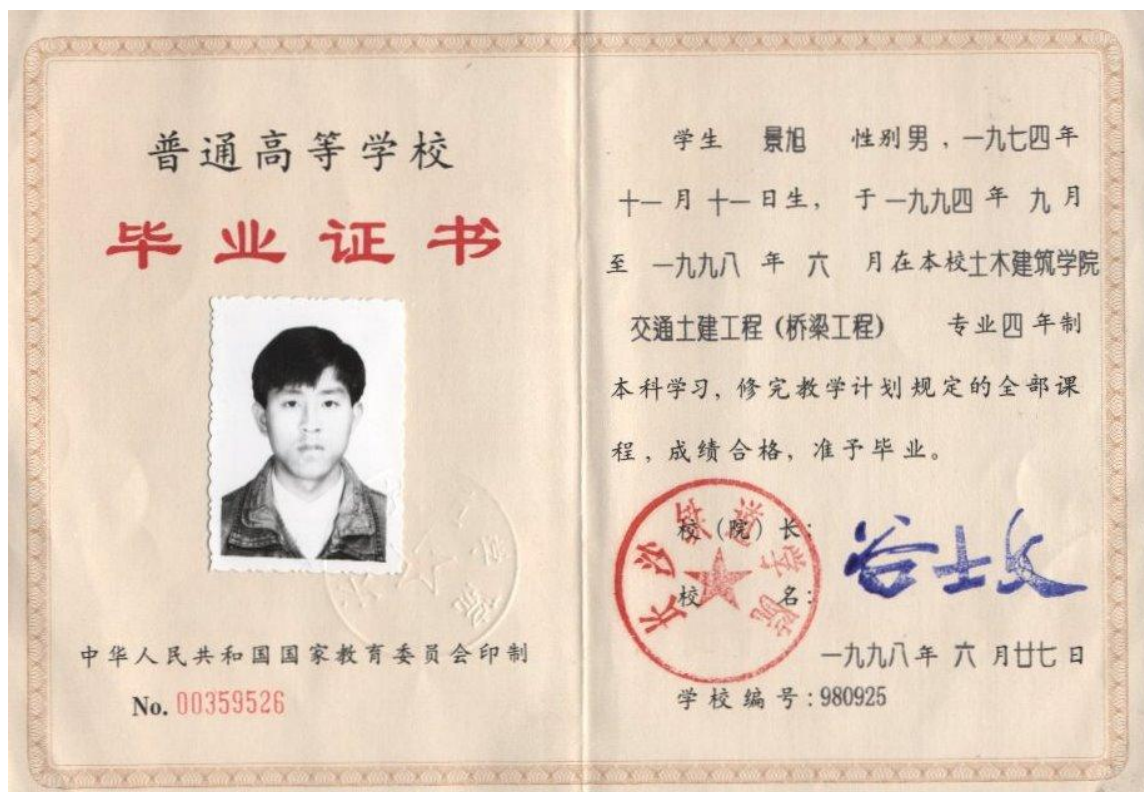 普通高等学校
毕业证书
中华人民共和国国家教育委员会印制
No. 00359526
学生 景旭 性别男，一九七四年
十一月十一日生， 于一九九四年 九月
至 一九九八 年 六 月在本校土木建筑学院
交通土建工程（桥梁工程） 专业四年制
本科学习，修完教学计划规定的全部课
程，成绩合格，准予毕业。
校（院）长：谷士文
校 名：
长沙铁道学院
一九九八年 六 月廿七日
学校编号：980925